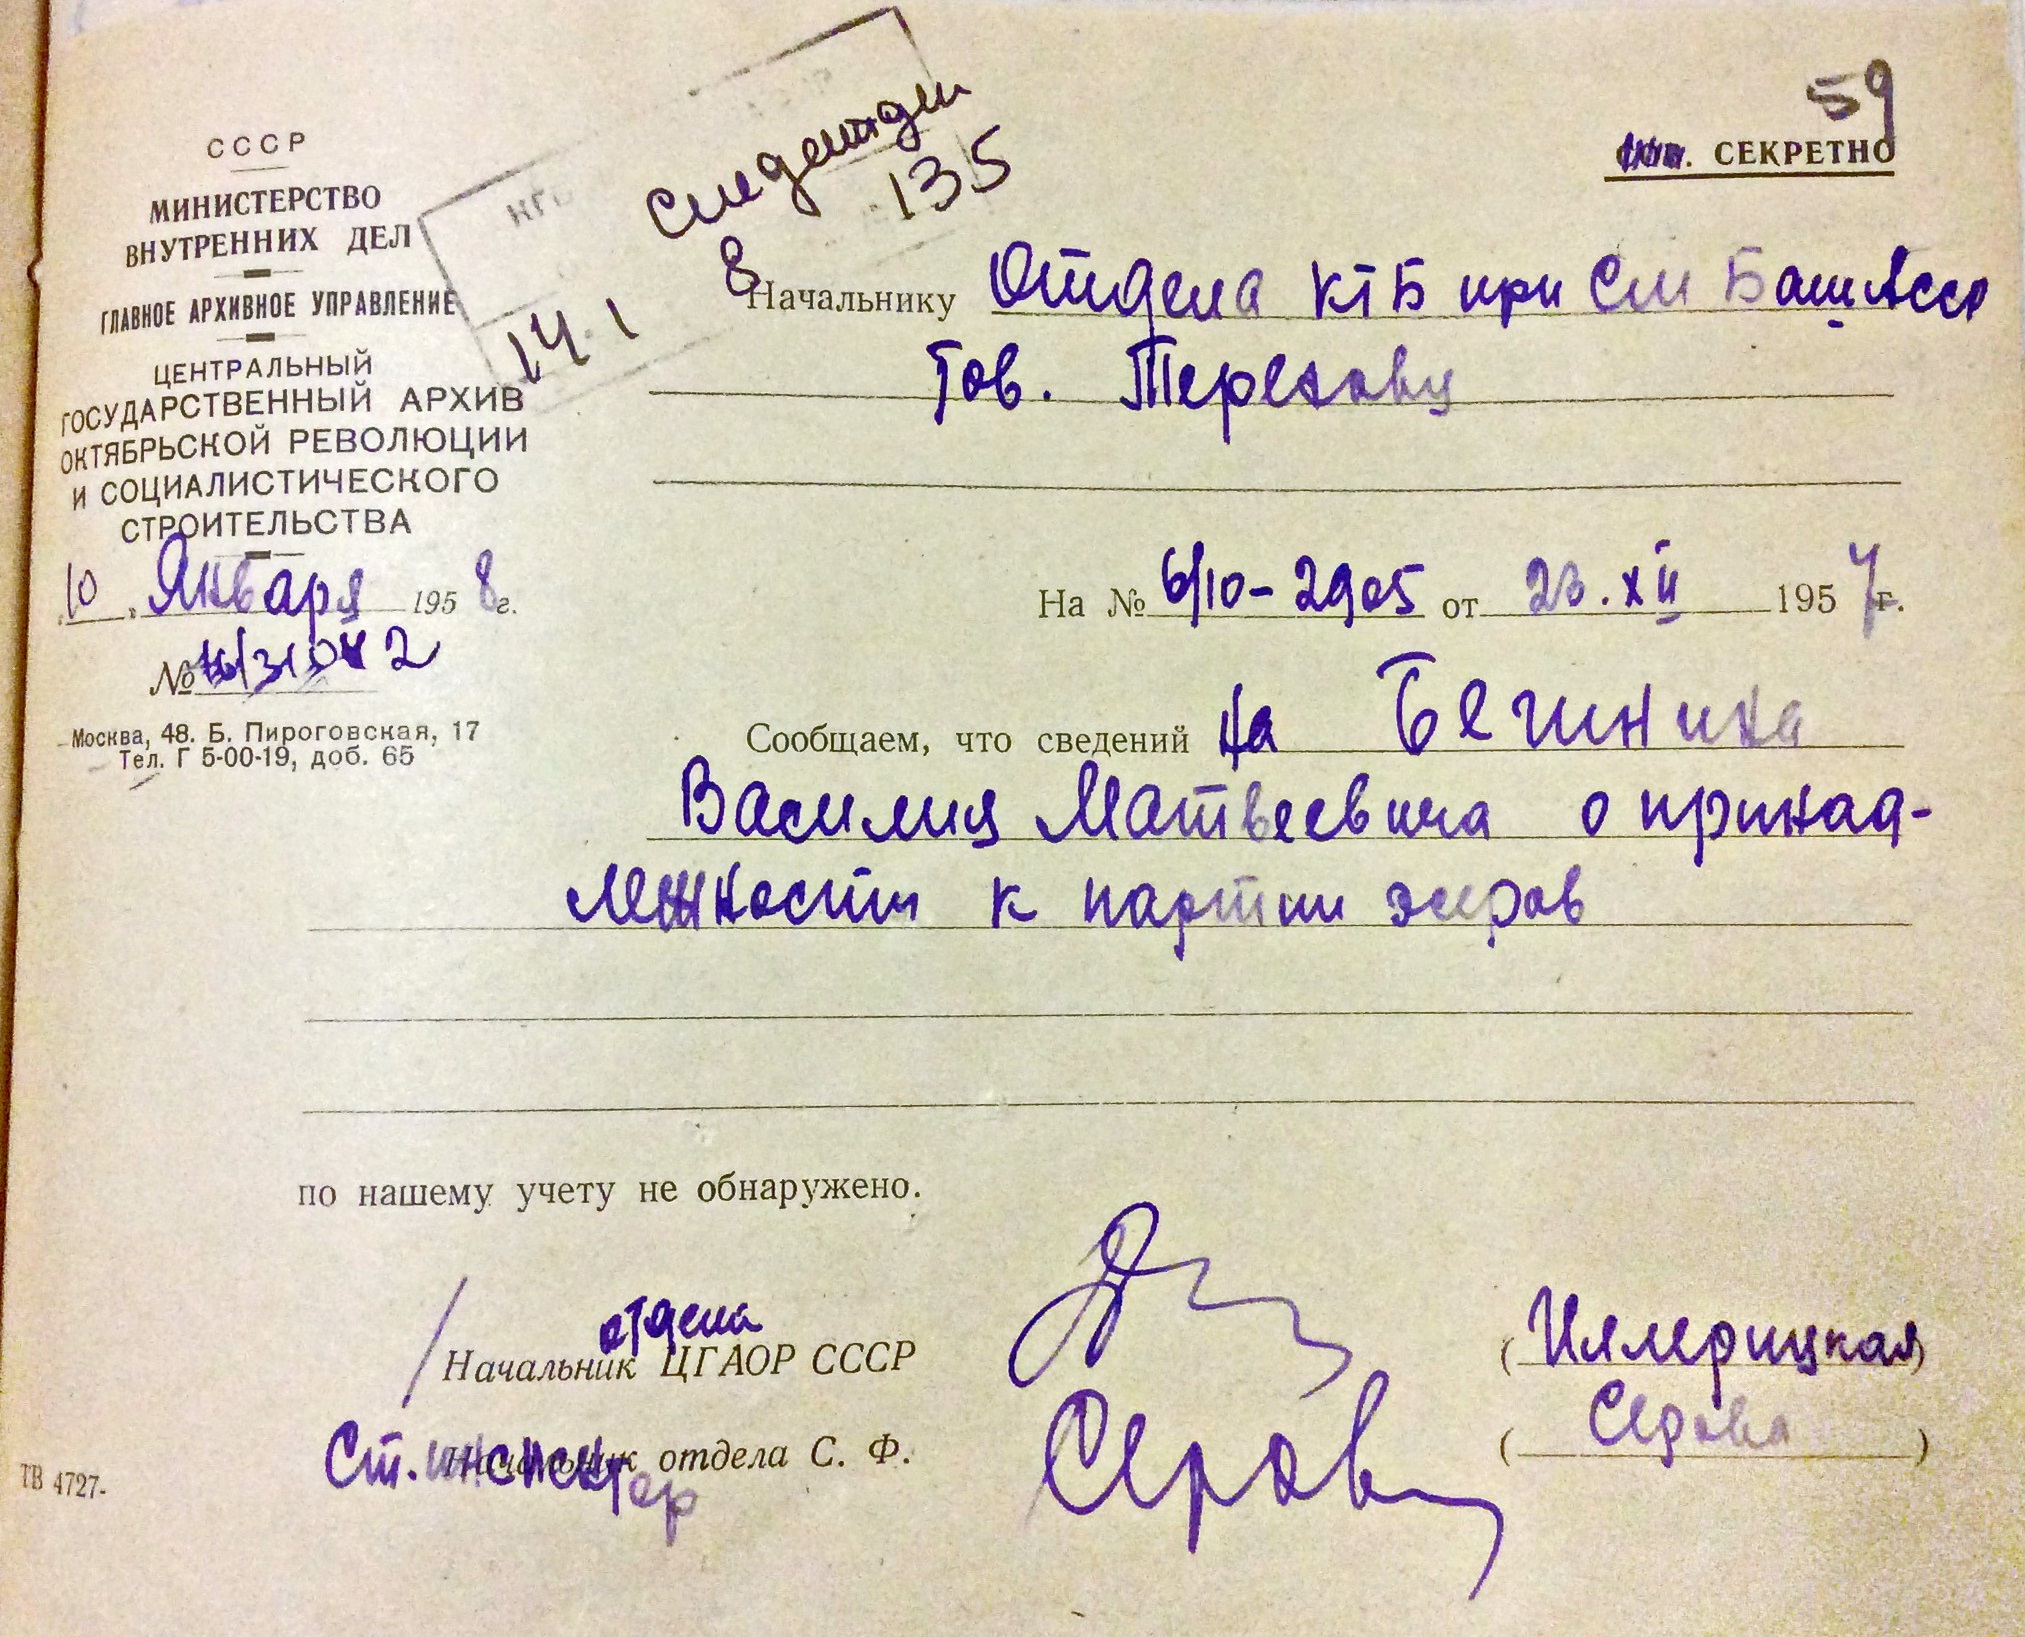 59
СЕКРЕТНО
СССР
МИНИСТЕРСТВО
ВНУТРЕННИХ ДЕЛ
ГЛАВНОЕ АРХИВНОЕ УПРАВЛЕНИЕ
ЦЕНТРАЛЬНЫЙ
ГОСУДАРСТВЕННЫЙ АРХИВ
ОКТЯБРЬСКОЙ РЕВОЛЮЦИИ
И СОЦИАЛИСТИЧЕСКОГО
СТРОИТЕЛЬСТВА
10 Января 1958 г.
№
Москва, 48. Б. Пироговская, 17
Тел. Г 5-00-19, доб. 65
135
8
14.1
Начальнику Отдела КГБ при СМ БашАССР
Тов. Терехову
На № 6/10-2905 от 23.XII 1957 г.
Сообщаем, что сведений на
Василия Матвеевича о принад-
лежности к партии эсеров
по нашему учету не обнаружено.
отдела
Начальник ЦГАОР СССР
Ст. инспектор
Начальник отдела С. Ф.
Серов
(Серова)
ТВ 4727-